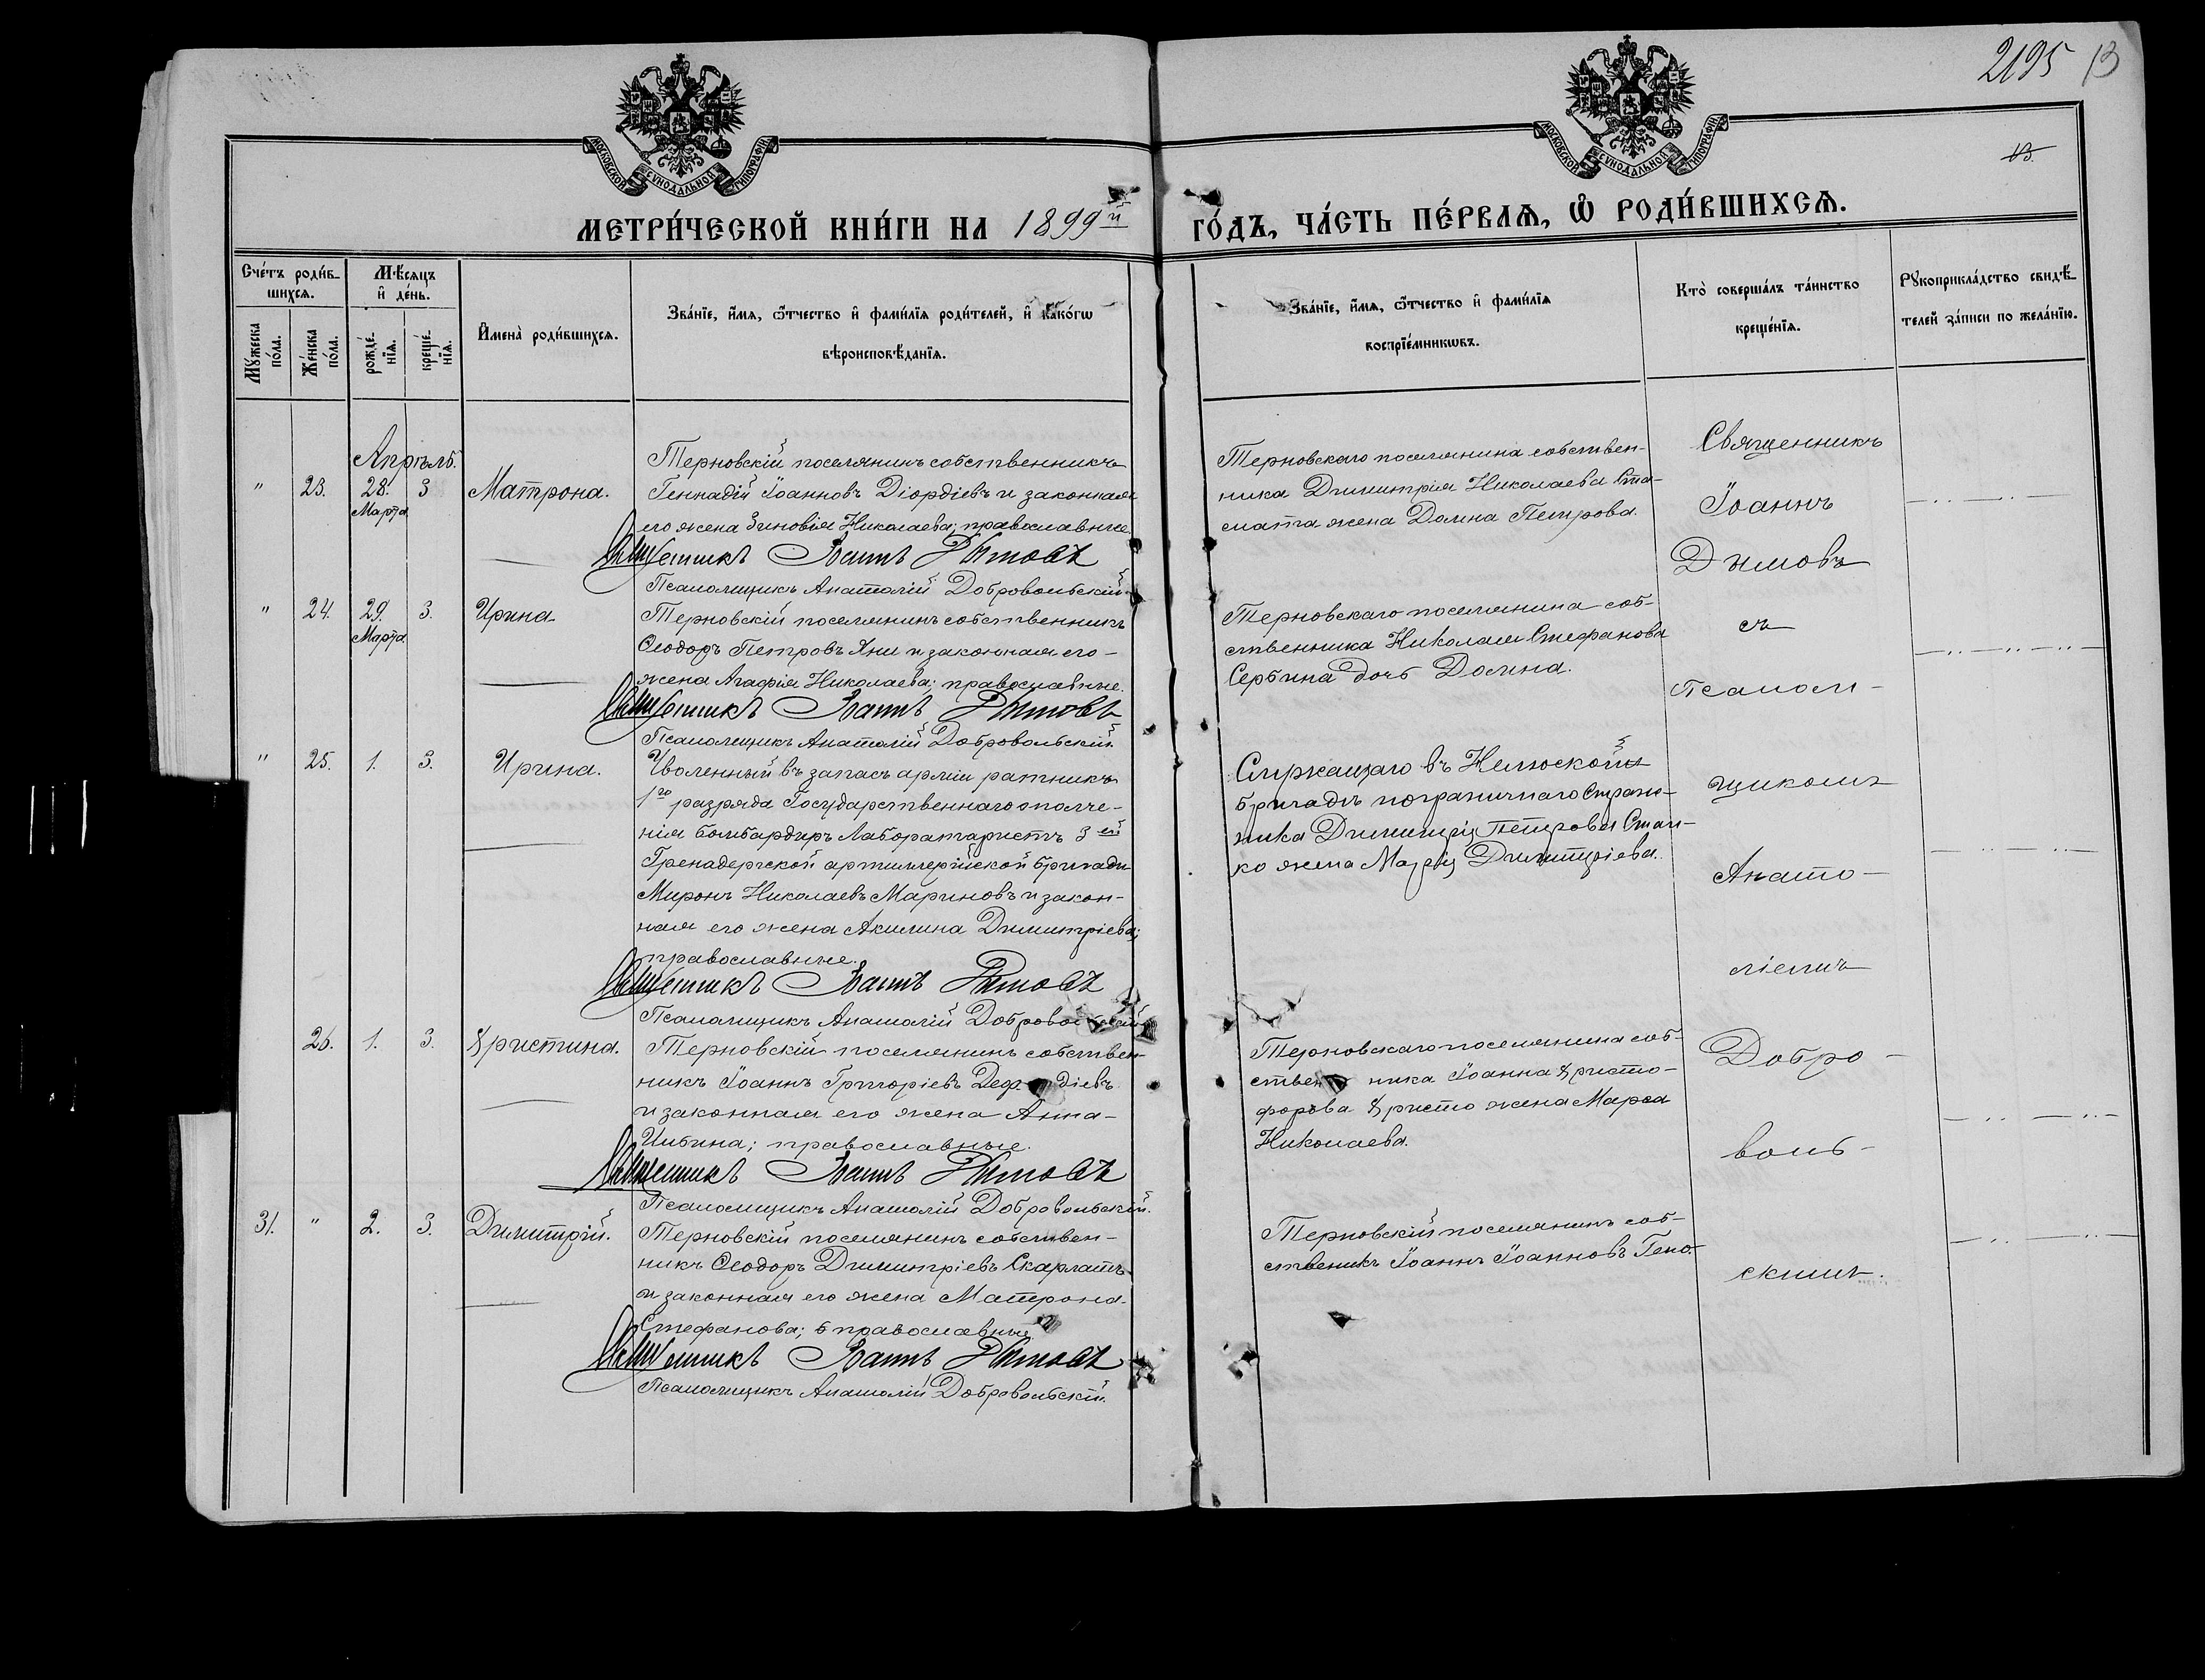 2195 13
13.
МОСКОВСКОЙ СУНОДАЛЬНОЙ ТИПОГРАФІИ
МОСКОВСКОЙ СУНОДАЛЬНОЙ ТИПОГРАФІИ
МЕТРИ́ЧЕСКОЙ КНИ́ГИ НА 1899й ГО́ДЪ, ЧА́СТЬ ПЕ́РВАѦ, Ѡ РОДИ́ВШИХСѦ.
Сче́тъ роди́в-
шихсѧ.
Мꙋ́жеска
по́ла.
Же́нска
по́ла.
Мѣ́сѧцъ
и҆ де́нь.
рожде́-
нїѧ.
креще́-
нїѧ.
И҆мена̀ роди́вшихсѧ.
Зва́нїе, и҆́мѧ, ѻ҆́тчество и҆ фами́лїѧ роди́телей, и҆ како́гѡ
вѣроисповѣ́данїѧ.
Зва́нїе, и҆́мѧ, ѻ҆́тчество и҆ фами́лїѧ
воспрїе́мникѡвъ.
Кто̀ соверша́лъ та́инство
креще́нїѧ.
Рꙋкоприкла́дство свидѣ́-
телей за́писи по жела́нїю.
Апрѣль.
" 23. 28. 3 Матрона.
Марта
Терновскій поселянинъ собственникъ
Геннадій Іоанновъ Діордіевъ и законная
его жена Зиновія Николаева; православные
Священникъ Іоаннъ Дымовъ
Псаломщикъ Анатолій Добровольскій.
Терновскаго поселянина собствен-
ника Димитрія Николаева Ста-
мата жена Домна Петрова.
" 24. 29. 3. Ирина
Марта
Терновскій поселянинъ собственникъ
Ѳеодоръ Петровъ Яни и законная его-
жена Агафія Николаева; православные.
Священникъ Іоаннъ Дымовъ
Псаломщикъ Анатолій Добровольскій.
Терновскаго поселянина соб-
ственника Николая Стефанова
Сербина дочь Домна.
" 25. 1. 3. Ирина.
Уволенный въ запасъ арміи ратникъ
1го разряда Государственнаго ополче-
нія бомбардиръ Лаборатористъ 3ей
Гренадерской артиллерійской бригады
Миронъ Николаевъ Мариновъ и закон-
ная его жена Акилина Димитріева;
православные.
Священникъ Іоаннъ Дымовъ
Псаломщикъ Анатолій Добровольскій
Служащаго въ
бригадѣ пограничнаго Страж-
ника Димитрія Петрова Стан-
ко жена Марія Димитріева.
26. 1. 3. Христина.
Терновскій поселянинъ собствен-
никъ Іоаннъ Григоріевъ
и законная его жена Анна-
Ильина; православные.
Священникъ Іоаннъ Дымовъ
Псаломщикъ Анатолій Добровольскій.
Терновскаго поселянина соб-
ствен ника Іоанна Христо-
форова Христо жена Марѳа
Николаева.
31. " 2. 3. Димитрій.
Терновскій поселянинъ собствен-
никъ Ѳеодоръ Димитріевъ Скарлатъ
и законная его жена Матрона-
Стефанова; православные
Священникъ Іоаннъ Дымовъ
Псаломщикъ Анатолій Добровольскій.
Терновскій поселянинъ соб-
ственикъ Іоаннъ Іоанновъ
Священникъ
Іоаннъ
Дымовъ
съ
псалом-
щикомъ
Анато-
ліемъ
Добро-
воль-
скимъ.